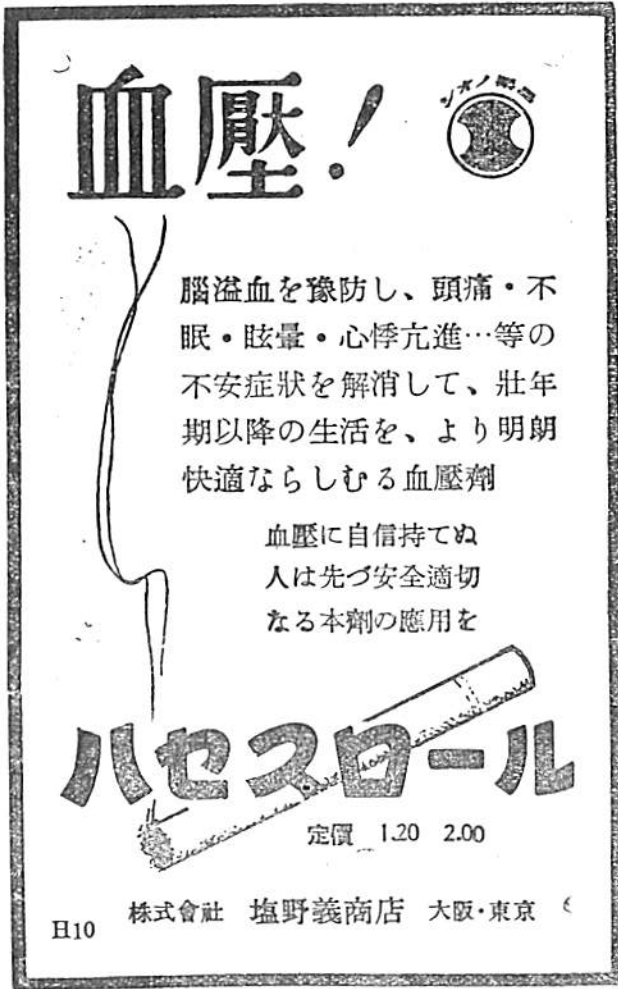 血壓!
シオノ製品
腦溢血を豫防し、頭痛・不
眠・眩暈・心悸亢進…等の
不安症狀を解消して、壯年
期以降の生活を、より明朗
快適ならしむる血壓劑
血壓に自信持てぬ
人は先づ安全適切
なる本劑の應用を
ハセスロール
定價 1.20 2.00
株式會社 塩野義商店 大阪・東京
H10